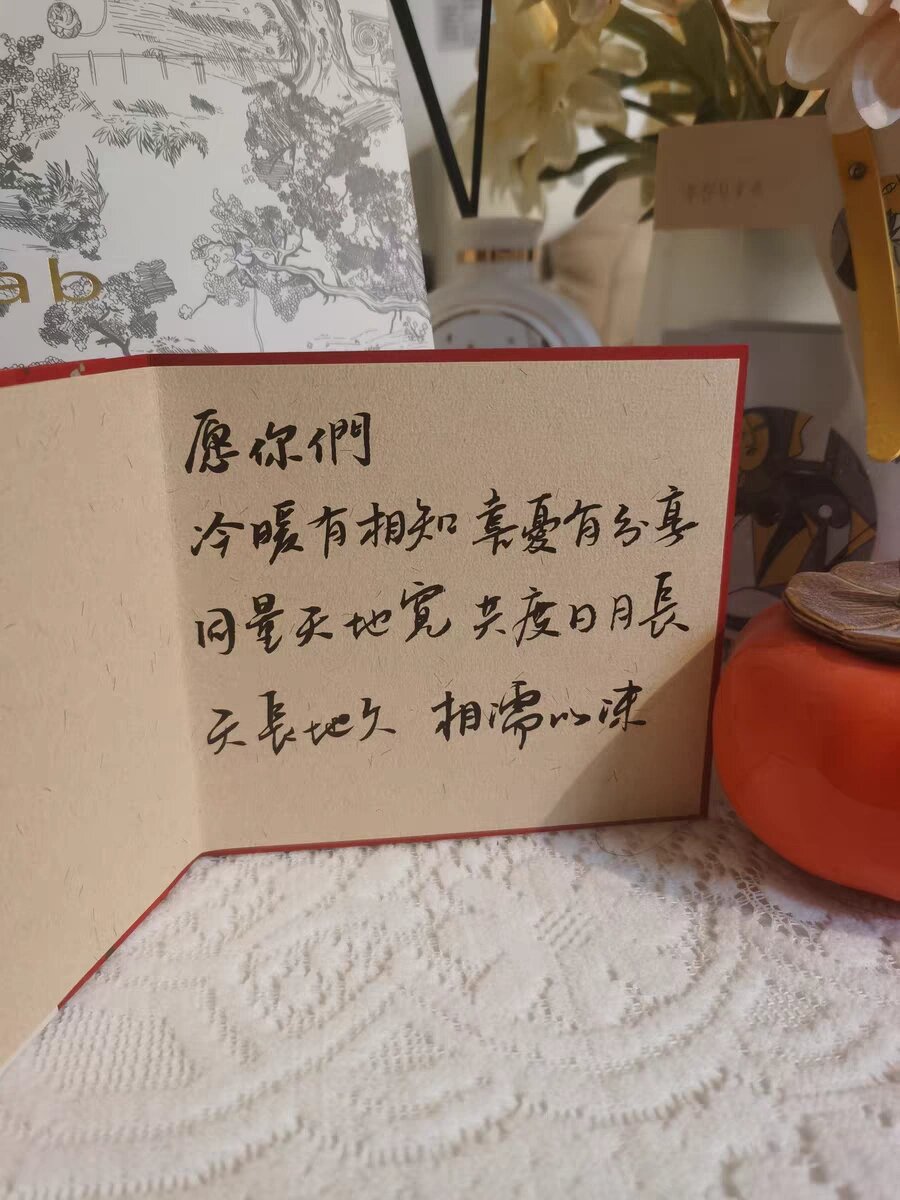 ab
愿你們
冷暖有相知 喜憂有分享
同量天地寬 共度日月長
天長地久 相濡以沫